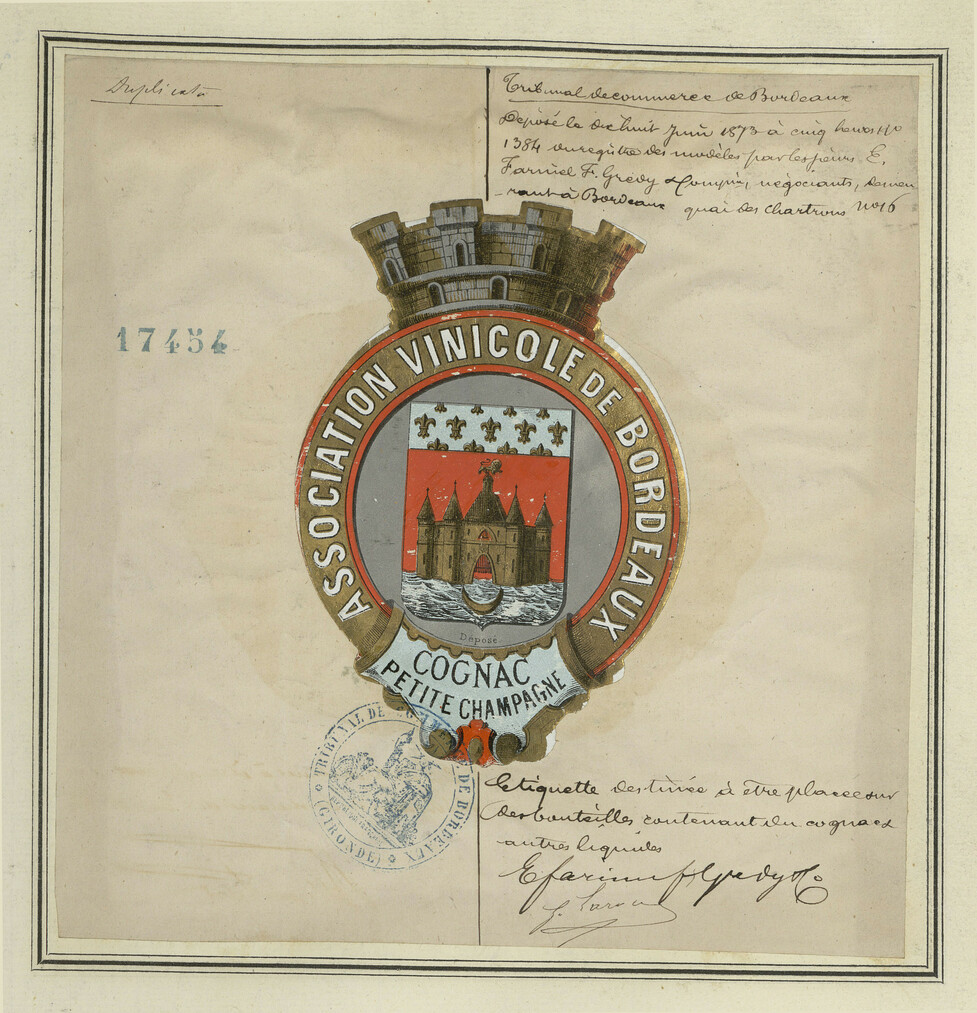 Duplicata
Tribunal de commerce de Bordeaux
Déposé le dix huit Juin 1873 à cinq heures No
1384 du registre des modèles par les sieurs E.
F. Gredy & Compie, négociants, demeu
-rant à Bordeaux quai des Chartrons No 16
17454
ASSOCIATION VINICOLE DE BORDEAUX
Déposé
COGNAC
PETITE CHAMPAGNE
TRIBUNAL DE COMMERCE DE BORDEAUX
(GIRONDE)
Etiquette destinée à être placée sur
des bouteilles contenant du cognac &
autres liquides